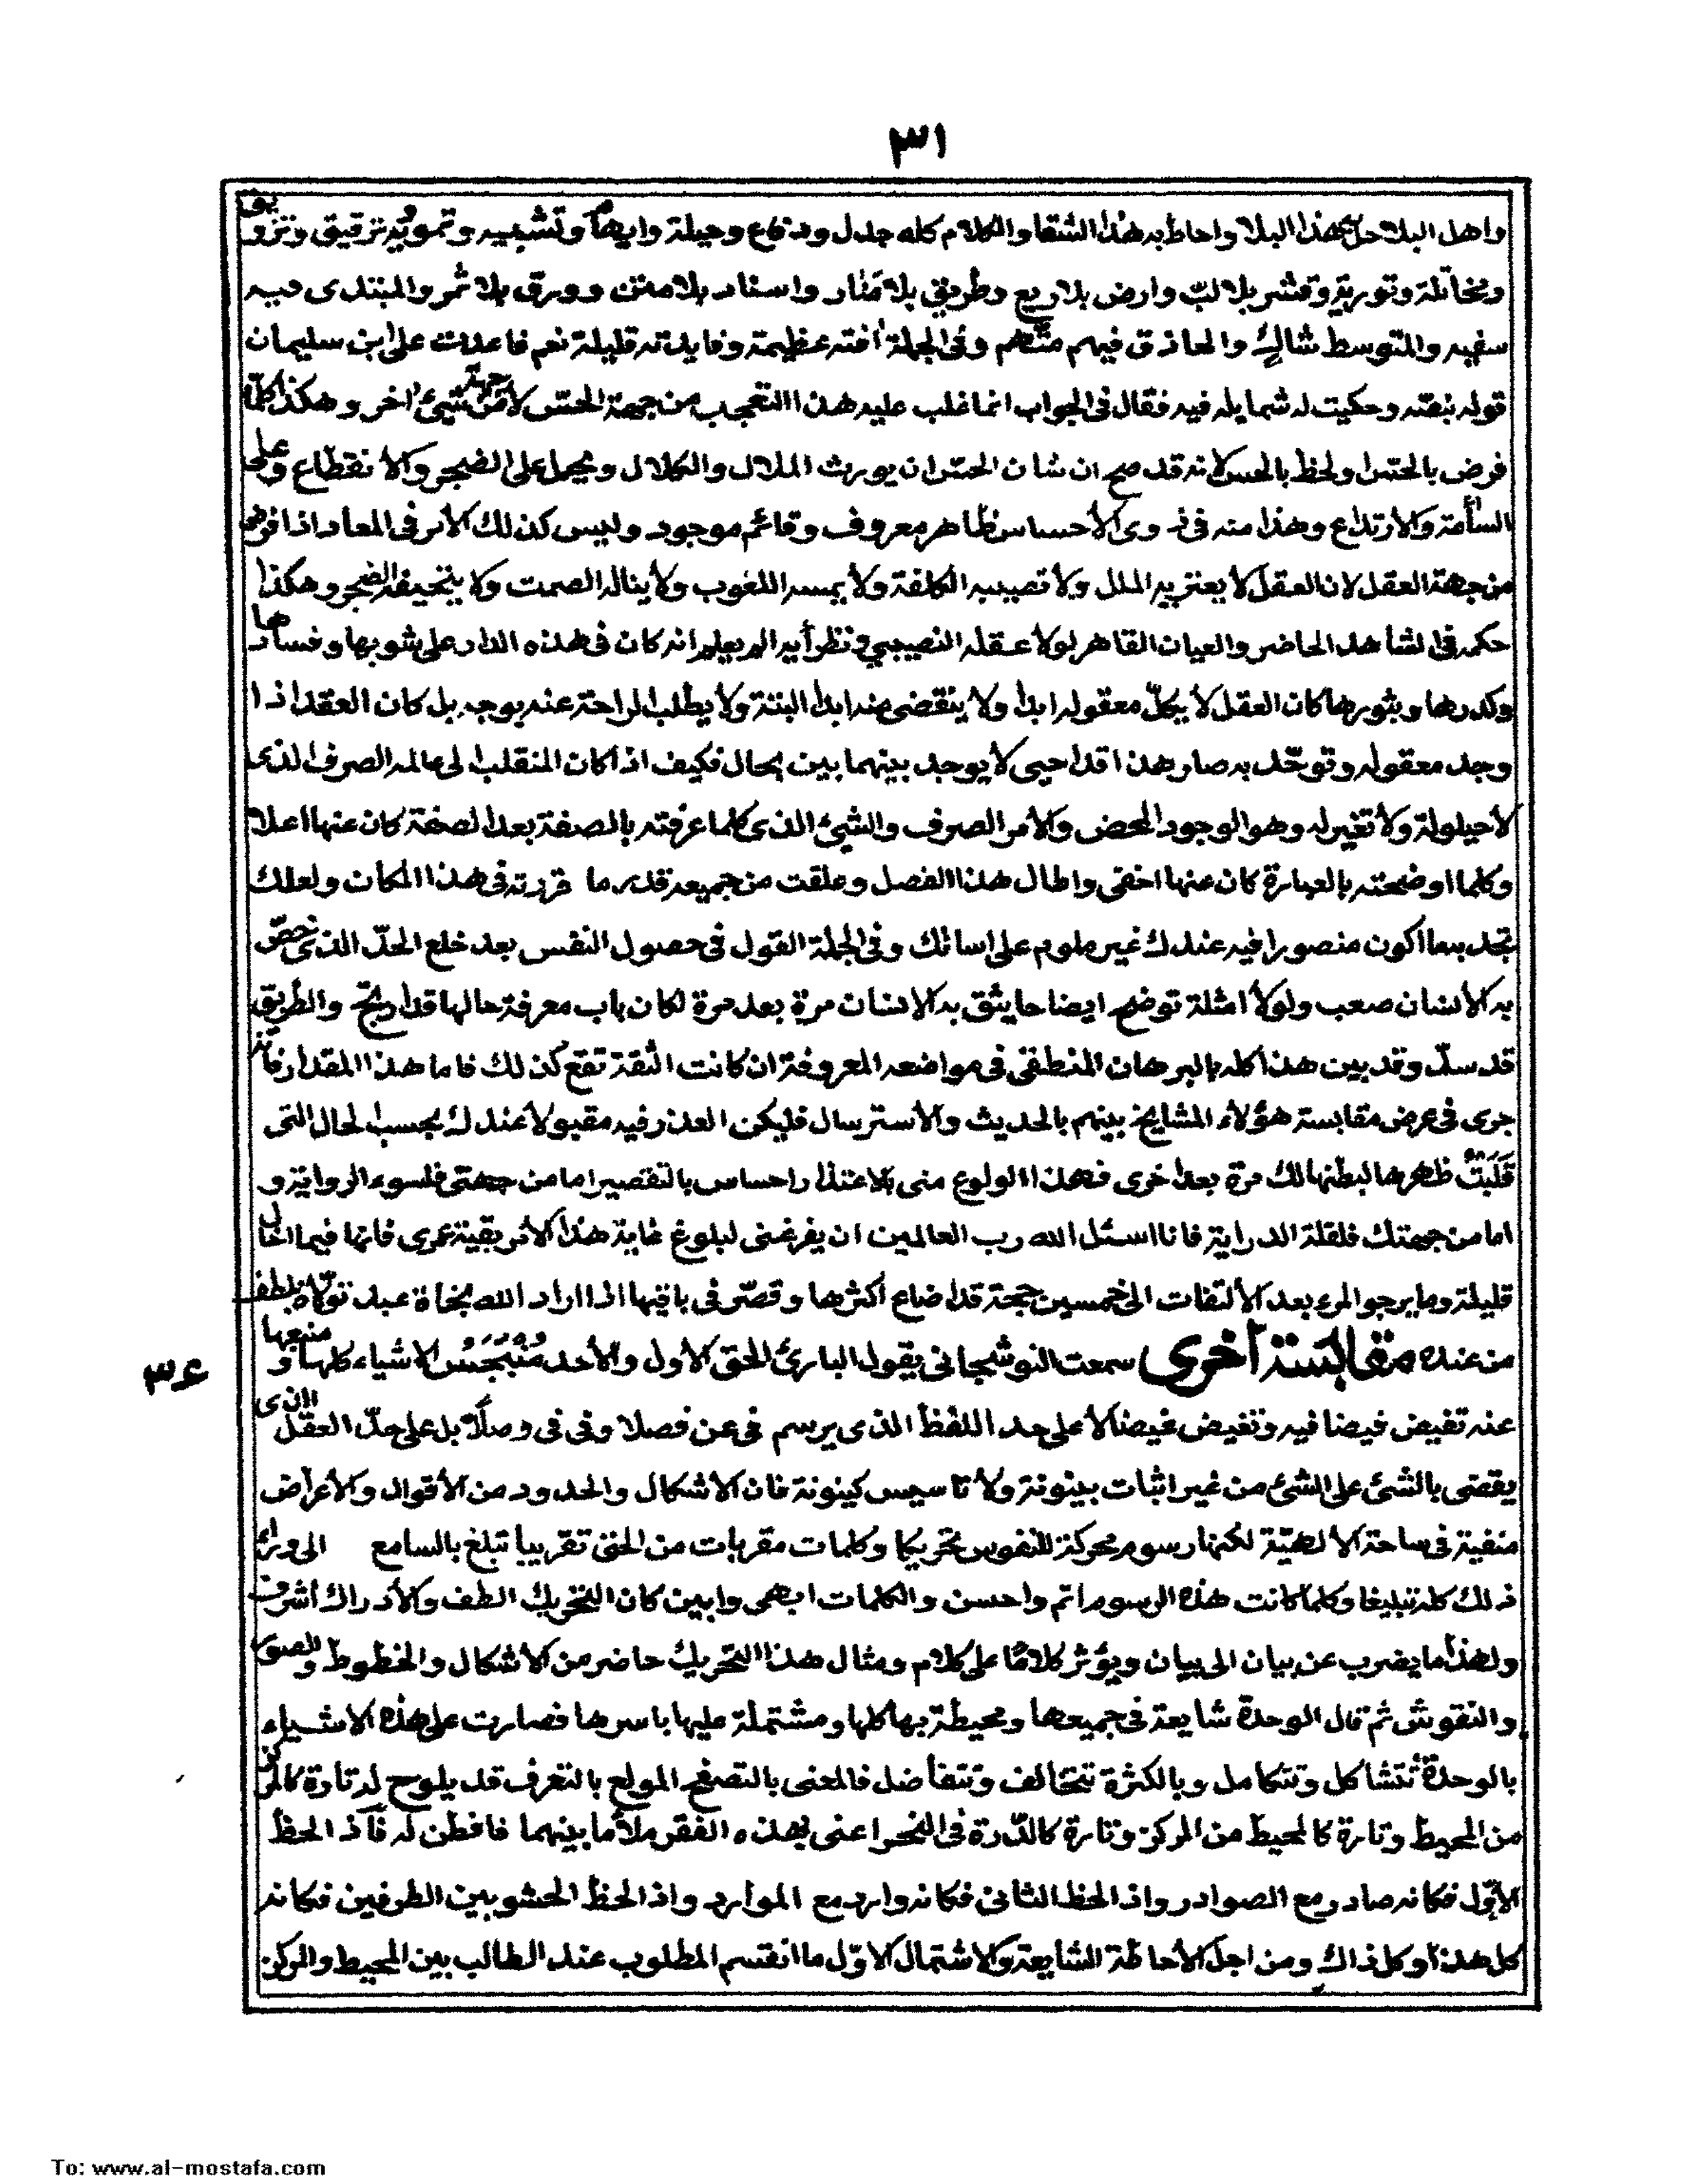 ٣١
واهل البلاء حل بهذا البلا واحاط به هذا الشقا والكلام كله جدل ودفاع وحيلة وايهام وتشبيه وتمويه ترقيق وتزويق
ومخاتلة وتورية وقشر بلا لبّ وارض بلا ريع وطريق بلا منار واسناد بلا متن وورق بلا ثمر والمبتدى فيه
سفيه والمتوسط شاك والحاذق فيهم متهم وفى الجملة آفته عظيمة وفايدته قليلة نعم فاعدت على ابن سليمان
قوله بنصّه وحكيت له شمايله فيه فقال فى الجواب انما غلب عليه هذا التعجب من جهة الحسّ لا من جهة شيئ اخر وهكذا كلّما
فرض بالحسّ او لحظ بالحس لانه قد صح ان شان الحسّ ان يورث الملال والكلال ويحمل على الضجر والانقطاع وعلى
السأمة والارتداع وهذا منه فى ذوى الاحساس ظاهر معروف وقائم موجود وليس كذلك الأمر فى المعاد اذا فرض
من جهة العقل لان العقل لا يعتريه الملل ولا تصيبه الكلفة ولا يمسه اللغوب ولا يناله الصمت ولا يتحيفه الضجر وهكذا
حكمه فى الشاهد الحاضر والعيان القاهر لولا عقله النصيبي ونظر أيه الم يعلم انه كان فى هذه الدار على شوبها وفسادها
وكدرها وبثورها كان العقل لا يكلّ معقوله ابدا ولا ينقضى منه ابدا البتة ولا يطلب الراحة عنه بوجه بل كان العقل اذا
وجد معقوله وتوحّد به صار هذا اقدا حيى لا يوجد بينهما بين بحال فكيف اذا كان المنقلب الى عالمه الصرف الذى
لا حيلولة ولا تغير له وهو الوجود المحض والأمر الصرف والشيئ الذى كلما عرفته بالصفة بعد الصفة كان عنها اعلا
وكلما اوضحته بالعبارة كان عنها اخفى واطال هذا الفصل وعلقت من جميعه قدر ما قررته فى هذا المكان ولعلك
تجد بما اكون منصورا فيه عندك غير ملوم على اسائك وفى الجملة القول فى حصول النفس بعد خلع الحدّ الذى خصّ
به الانسان صعب ولولا امثلة توضح ايضاحا يثق به الانسان مرة بعد مرة لكان باب معرفة حالها قد ارتج والطريق
قد سدّ وقد بين هذا كله بالبرهان المنطقى فى مواضعه المعروفة ان كانت الثقة تقع كذلك فاما هذا المقدار فانه
جرى فى عرض مقابسة هؤلاء المشايخ بينهم بالحديث والاسترسال فليكن العذر فيه مقبولا عندك بحسب الحال التى
قَلَبَتْ ظهرها لبطنها لك مرة بعد اخرى فهذا الولوع منى بالاعتذار احساس بالتقصير اما من جهتى فلسوء الرواية و
اما من جهتك فلقلة الدراية فانا اسئل الله رب العالمين ان يفرغنى لبلوغ غاية هذا الأمر بقية عمرى فانها فيما اخال
قليلة وما يرجو المرء بعد الالتفات الى خمسين حجة قد اضاع اكثرها وقصّر فى باقيها اذا اراد الله نجاة عبد تولّاه بلطف
من عنده مقابسة أخرى سمعت النوشجانى يقول البارئ الحق الأول والأحد مُنبَجَسُ الاشياء كلها ومنبعها
٣٤
عنه تفيض فيضا فيه وتغيض غيضا لا على حد اللفظ الذى يرسم فى عن فصلا وفى فى وصلًا بل على حدّ العقل الذى
يقضى بالشئ على الشئ من غير اثبات بينونة ولا تاسيس كينونة فان الاشكال والحدود من الأقوال والأعراض
منفية فى ساحة الالهيّة لكنها رسوم محركة للنفوس تحريكا وكلمات مقربات من الحق تقريبا تبلغ بالسامع الى وراء
ذلك كله تبليغا وكلما كانت هذه الرسوم اتم واحسن والكلمات ابهى وابين كان التحريك الطف والأدراك أشرف
ولهذا ما يضرب عن بيان الى بيان ويؤثر كلامًا على كلام ومثال هذا التحريك حاضر من الأشكال والخطوط والصور
والنقوش ثم قال الوحدة شايعة فى جميعها ومحيطة بها كلها ومشتملة عليها باسرها فصارت على هذه الاشياء
بالوحدة تتشاكل وتتكامل وبالكثرة تتخالف وتتفاضل فالمعنى بالتصفح المولع بالتعرف قد يلوح له تارة كالمركز
من المحيط وتارة كالمحيط من المركز وتارة كالدّرة فى النحر اعنى بهذه الفقر ملأ ما بينهما فافطن له فأذ الحظ
الأوّل فكانه صادر مع الصوادر واذ الحظ الثانى فكانه وارد مع الموارد واذ الحظ الحشو بين الطرفين فكانه
كل هذا او كل ذاك ومن اجل الأحاطة الشايعة والاشتمال الاوّل ما انقسم المطلوب عند الطالب بين المحيط والمركز
To: www.al-mostafa.com